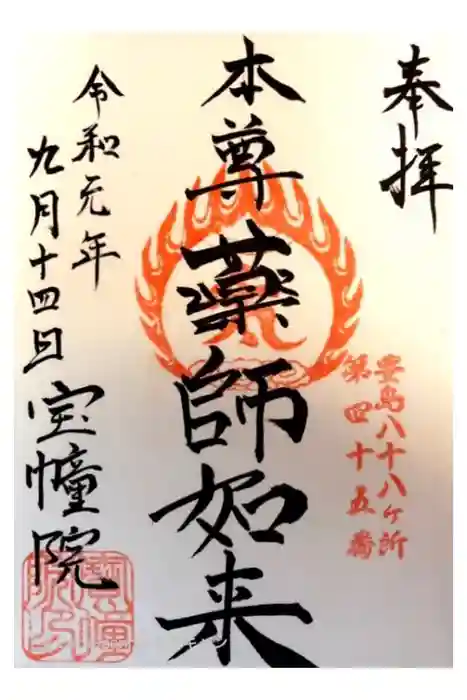 奉拝
豊島八十八ヶ所
第四十五番
本尊薬師如来
令和元年
九月十四日
宝幢院